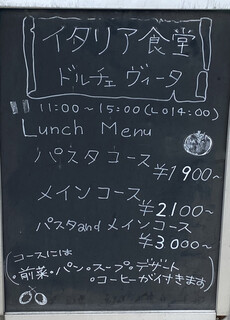 イタリア食堂
ドルチェ ヴィータ
11:00～15:00(LO14:00)
Lunch Menu
パスタコース
¥1900～
メインコース
¥2100～
パスタandメインコース
¥3000～
コースには
・前菜・パン・スープ・デザート
・コーヒーが付きます